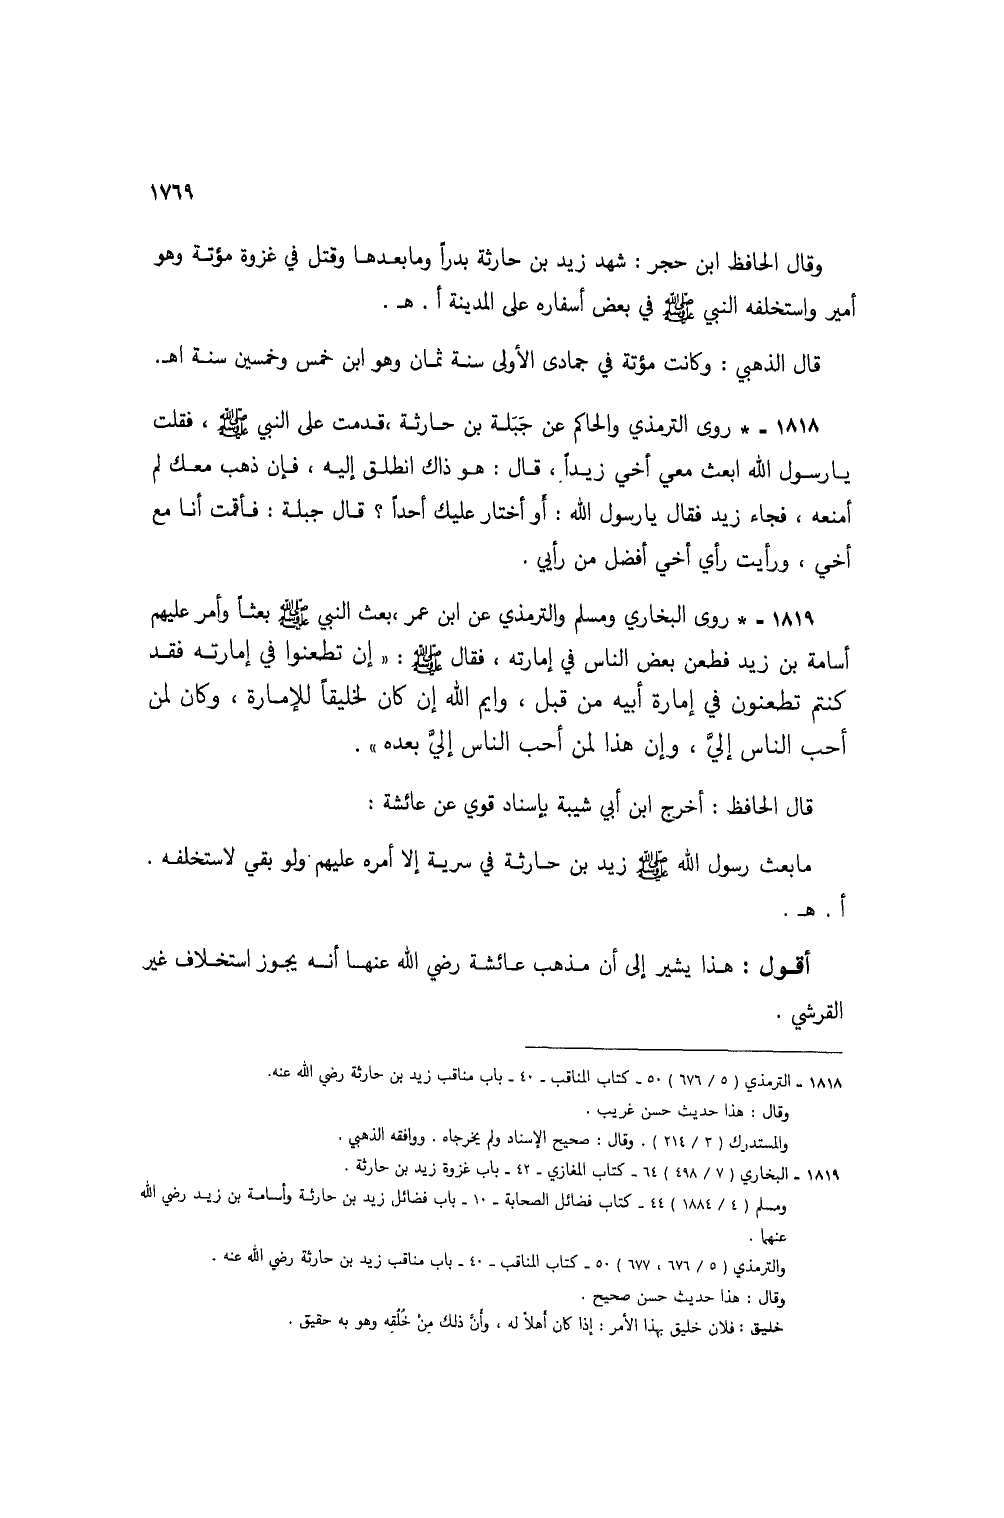 ١٧٦٩
وقال الحافظ ابن حجر : شهد زيد بن حارثة بدراً ومابعدها وقتل في غزوة مؤتة وهو
أمير واستخلفه النبي ﷺ في بعض أسفاره على المدينة أ . هـ .
قال الذهبي : وكانت مؤتة في جمادى الأولى سنة ثمان وهو ابن خمس وخمسين سنة اهـ.
١٨١٨ ـ * روى الترمذي والحاكم عن جَبَلة بن حارثة ،قدمت على النبي ﷺ ، فقلت
يارسول الله ابعث معي أخي زيداً ، قال : هو ذاك انطلق إليه ، فإن ذهب معك لم
أمنعه ، فجاء زيد فقال يارسول الله : أَو أختار عليك أحداً ؟ قال جبلة : فأقمت أنا مع
أخي ، ورأيت رأي أخي أفضل من رأيي .
١٨١٩ ـ * روى البخاري ومسلم والترمذي عن ابن عمر ،بعث النبي ﷺ بعثاً وأمر عليهم
أسامة بن زيد فطعن بعض الناس في إمارته ، فقال ﷺ : « إن تطعنوا في إمارته فقد
كنتم تطعنون في إمارة أبيه من قبل ، وايم الله إن كان لخليقاً للإمارة ، وكان لمن
أحب الناس إليَّ ، وإن هذا لمن أحب الناس إليَّ بعده » .
قال الحافظ : أخرج ابن أبي شيبة بإسناد قوي عن عائشة :
مابعث رسول الله ﷺ زيد بن حارثة في سرية إلا أمره عليهم ولو بقي لاستخلفه .
أ . هـ .
أقول : هذا يشير إلى أن مذهب عائشة رضي الله عنها أنه يجوز استخلاف غير
القرشي .
١٨١٨ ـ الترمذي ( ٥ / ٦٧٦ ) ٥٠ ـ كتاب المناقب ـ ٤٠ ـ باب مناقب زيد بن حارثة رضي الله عنه.
وقال : هذا حديث حسن غريب .
والمستدرك ( ٣ / ٢١٤ ) . وقال : صحيح الإسناد ولم يخرجاه . ووافقه الذهبي .
١٨١٩ ـ البخاري ( ٧ / ٤٩٨ ) ٦٤ ـ كتاب المغازي ـ ٤٢ ـ باب غزوة زيد بن حارثة .
ومسلم ( ٤ / ١٨٨٤ ) ٤٤ ـ كتاب فضائل الصحابة ـ ١٠ ـ باب فضائل زيد بن حارثة وأسامة بن زيد رضي الله
عنهما .
والترمذي ( ٥ / ٦٧٦ ، ٦٧٧ ) ٥٠ ـ كتاب المناقب ـ ٤٠ ـ باب مناقب زيد بن حارثة رضي الله عنه .
وقال : هذا حديث حسن صحيح .
خليق : فلان خليق بهذا الأمر : إذا كان أهلاً له ، وأنَّ ذلك مِنْ خُلُقِه وهو به حقيق .